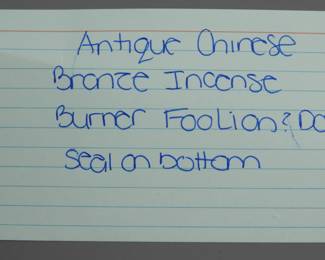 Antique Chinese
Bronze Incense
Burner Foo Lion? Do
Seal on bottom